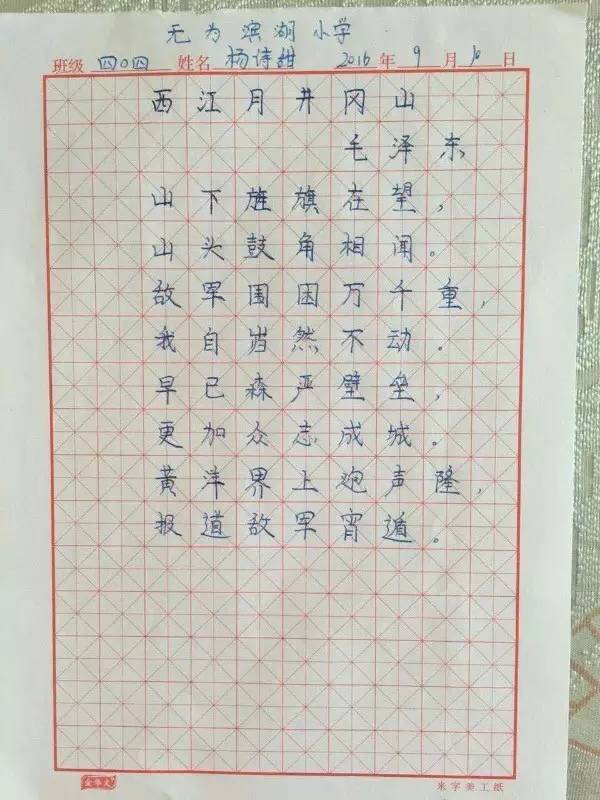 无为滨湖小学
班级 四〇四 姓名 杨诗甜 2016年9月10日
西江月井冈山
毛泽东
山下旌旗在望，
山头鼓角相闻。
敌军围困万千重，
我自岿然不动。
早已森严壁垒，
更加众志成城。
黄洋界上炮声隆，
报道敌军宵遁。
金华大
米字美工纸